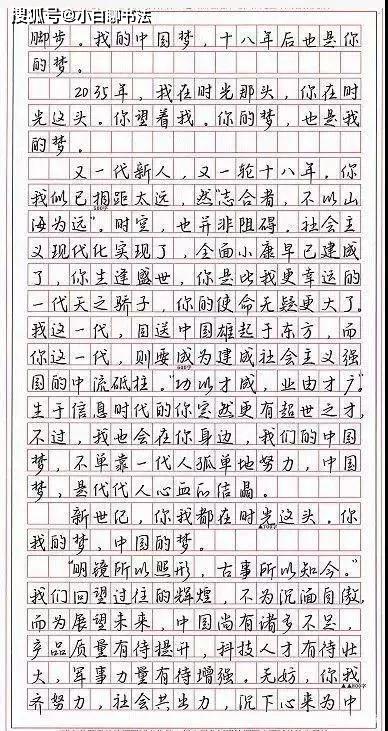 搜狐号@小白聊书法
脚步。我的中国梦，十八年后也是你
的梦。
2035年，我在时光那头，你在时
光这头。你望着我。你的梦，也是我
的梦。
又一代新人，又一轮十八年。你
我似已相距太远，然“志合者，不以山
海为远”。时空，也并非阻碍。社会主
义现代化实现了，全面小康早已建成
了，你生逢盛世，你是比我更幸运的
一代天之骄子，你的使命无疑更大了。
我这一代，目送中国雄起于东方，而
你这一代，则要成为建成社会主义强
600字
国的中流砥柱。“功以才成，业由才广。”
生于信息时代的你突然更有超世之才，
不过，我也会在你身边，我们的中国
梦，不单靠一代人孤单地努力，中国
梦，是代代人心血的结晶。
新世纪，你我都在时光这头。你
我的梦，中国的梦。
“明镜所以照形，古事所以知今。”
我们回望过往的辉煌，不为沉湎自傲，
而为展望未来，中国尚有诸多不足，
产品质量有待提升，科技人才有待壮
大，军事力量有待增强。无妨，你我
▲▲800字
齐努力，社会共出力，沉下心来为中